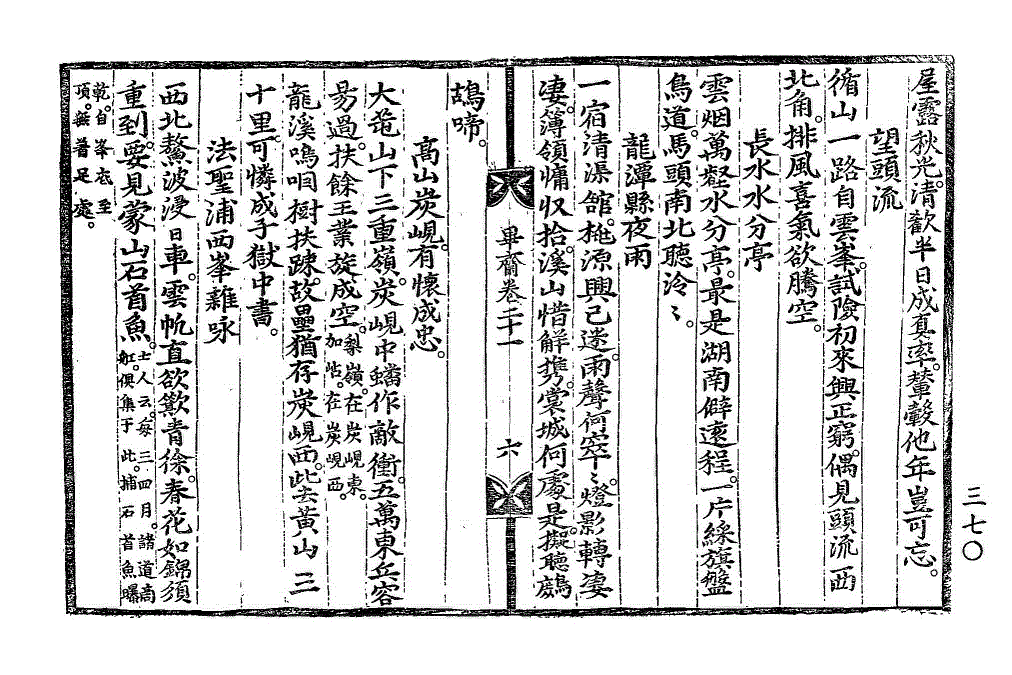 屋露秋光。淸歡半日成眞率。輦轂他年豈可忘。
望頭流
循山一路自雲峯。試險初來興正窮。偶見頭流西
北角。排風喜氣欲騰空。
長水水分亭
雲烟萬壑水分亭。最是湖南僻遠程。一片綵旗盤
鳥道。馬頭南北聽泠〻。
龍潭縣夜雨
一宿淸渠舘。拖源興已迷。雨聲何窣〻。燈影轉凄
凄。簿領慵收拾。溪山惜解携。裳城何處是。擬聽鷓
鴣啼。
畢齋卷二十一
六
高山炭峴。有懷成忠。
大篭山下三重嶺。炭峴中蟠作敵衝。五萬東兵容
易過。扶餘王業旋成空。梨嶺。在炭峴東。
加岾。在炭峴西。
龍溪嗚咽樹扶踈。故壘猶存炭峴西。此去黃山三
十里。可憐成子獄中書。
法聖浦西峯雜咏
西北鰲波浸日車。雲帆直欲簸靑徐。春花如錦須
重到。要見蒙山石首魚。士人云。每三四月。諸道商
舡。俱集于此。捕石首魚曝
乾。自峯底至
項。無着足處。
三七〇